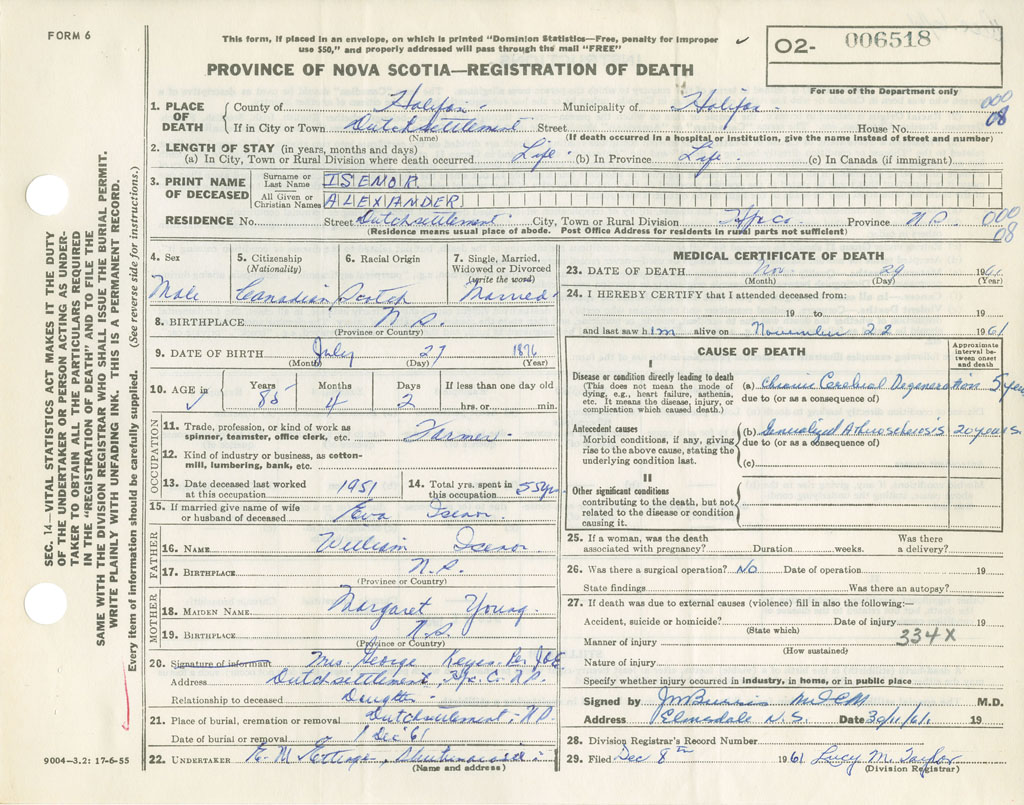 FORM 6
This form, if placed in an envelope, on which is printed "Dominion Statistics—Free, penalty for improper
use $50," and properly addressed will pass through the mail "FREE"
02- 006518
PROVINCE OF NOVA SCOTIA—REGISTRATION OF DEATH
For use of the Department only
1. PLACE OF DEATH
County of Halifax Municipality of Halifax 000
If in City or Town Dutch settlement Street House No. 08
(Name) (If death occurred in a hospital or institution, give the name instead of street and number)
2. LENGTH OF STAY (in years, months and days)
(a) In City, Town or Rural Division where death occurred Life (b) In Province Life (c) In Canada (if immigrant)
3. PRINT NAME OF DECEASED
Surname or Last Name ISENOR
All Given or Christian Names ALEXANDER
RESIDENCE No. Street Dutchsettlement City, Town or Rural Division Hfx Co Province N.S. 000
(Residence means usual place of abode. Post Office Address for residents in rural parts not sufficient) 08
4. Sex Male
5. Citizenship (Nationality) Canadian
6. Racial Origin Scotch
7. Single, Married, Widowed or Divorced (write the word) Married
8. BIRTHPLACE N.S.
(Province or Country)
9. DATE OF BIRTH July 27 1876
(Month) (Day) (Year)
10. AGE in Years 85 Months 4 Days 2 If less than one day old hrs. or min.
OCCUPATION
11. Trade, profession, or kind of work as spinner, teamster, office clerk, etc. Farmer
12. Kind of industry or business, as cotton-mill, lumbering, bank, etc.
13. Date deceased last worked at this occupation 1951
14. Total yrs. spent in this occupation 55yr
15. If married give name of wife or husband of deceased Eva Isenor
FATHER
16. NAME William Isenor
17. BIRTHPLACE N.S.
(Province or Country)
MOTHER
18. MAIDEN NAME Margaret Young
19. BIRTHPLACE N.S.
(Province or Country)
20. Signature of informant Mrs. George Keyes Per J.O.E.
Address Dutchsettlement, Hfx. Co. N.S.
Relationship to deceased Daughter
21. Place of burial, cremation or removal Dutchsettlement, N.S.
Date of burial or removal 1 Dec '61
22. UNDERTAKER
(Name and address)
MEDICAL CERTIFICATE OF DEATH
23. DATE OF DEATH Nov. 29 1961
(Month) (Day) (Year)
24. I HEREBY CERTIFY that I attended deceased from:
19 to 19
and last saw him alive on November 22 1961
CAUSE OF DEATH
Approximate interval between onset and death
I
Disease or condition directly leading to death
(This does not mean the mode of dying, e.g., heart failure, asthenia, etc. It means the disease, injury, or complication which caused death.)
(a) Chronic Cerebral Degeneration 5 years
due to (or as a consequence of)
Antecedent causes
Morbid conditions, if any, giving rise to the above cause, stating the underlying condition last.
(b) Generalized Atherosclerosis 20 years.
due to (or as a consequence of)
(c)
II
Other significant conditions
contributing to the death, but not related to the disease or condition causing it.
25. If a woman, was the death associated with pregnancy? Duration weeks. Was there a delivery?
26. Was there a surgical operation? No Date of operation 19
State findings Was there an autopsy?
27. If death was due to external causes (violence) fill in also the following:—
Accident, suicide or homicide? Date of injury 19
(State which)
Manner of injury 334X
(How sustained)
Nature of injury
Specify whether injury occurred in industry, in home, or in public place
Signed by M.D.
Address Elmsdale N.S. Date 30/11/61 19
28. Division Registrar's Record Number
29. Filed Dec 8th 1961 Lucy M. Taylor
(Division Registrar)
SEC. 14—VITAL STATISTICS ACT MAKES IT THE DUTY
OF THE UNDERTAKER OR PERSON ACTING AS UNDER-
TAKER TO OBTAIN ALL THE PARTICULARS REQUIRED
IN THE "REGISTRATION OF DEATH" AND TO FILE THE
SAME WITH THE DIVISION REGISTRAR WHO SHALL ISSUE THE BURIAL PERMIT.
WRITE PLAINLY WITH UNFADING INK. THIS IS A PERMANENT RECORD.
Every item of information should be carefully supplied. (See reverse side for instructions.)
9004-3.2: 17-6-55